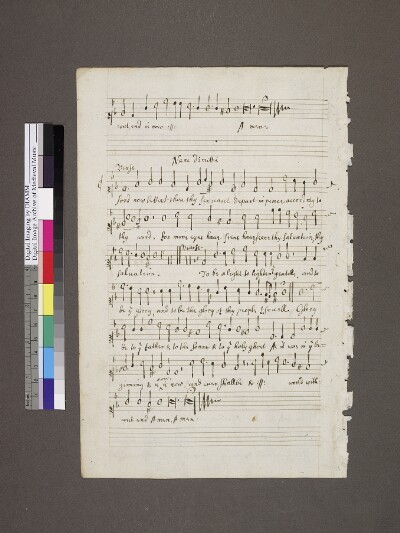 out end is now :||: Amen
Nunc dimittis
Verse
Lord now lettest thou thy Servant depart in peace according to
thy word. for mine eyes have, mine have seene thy salvation, thy
Verse
salvation. To be a light to lighten ye gentills, and to
be ye glory, and to be the glory of thy people Israell. Glory
be to ye father & to the Sonne & to ye holy ghost As it was in ye be-
ginning & is now and ever shalbe & :||: world with-
out end Amen, Amen
Digital Imaging by DIAMM
Digital Image Archive of Medieval Music